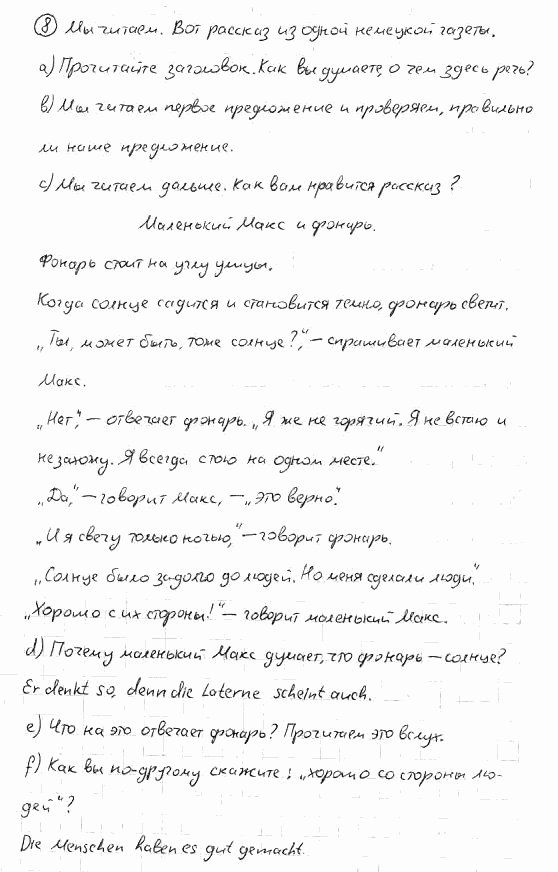 ⑧ Мы читаем. Вот рассказ из одной немецкой газеты.
a) Прочитайте заголовок. Как вы думаете, о чем здесь речь?
b) Мы читаем первое предложение и проверяем, правильно
ли наше предложение.
c) Мы читаем дальше. Как вам нравится рассказ?
Маленький Макс и фонарь.
Фонарь стоит на углу улицы.
Когда солнце садится и становится темно, фонарь светит.
„Ты, может быть, тоже солнце?“, – спрашивает маленький
Макс.
„Нет“, – отвечает фонарь. „Я же не горячий. Я не встаю и
не захожу. Я всегда стою на одном месте.“
„Да,“ – говорит Макс, – „это верно“.
„И я свечу только ночью,“ – говорит фонарь.
„Солнце было задолго до людей. Но меня сделали люди“.
„Хорошо с их стороны!“ – говорит маленький Макс.
d) Почему маленький Макс думает, что фонарь – солнце?
Er denkt so, denn die Laterne scheint auch.
e) Что на это отвечает фонарь? Прочитаем это вслух.
f) Как вы по-другому скажите: „хорошо со стороны лю-
дей“?
Die Menschen haben es gut gemacht.